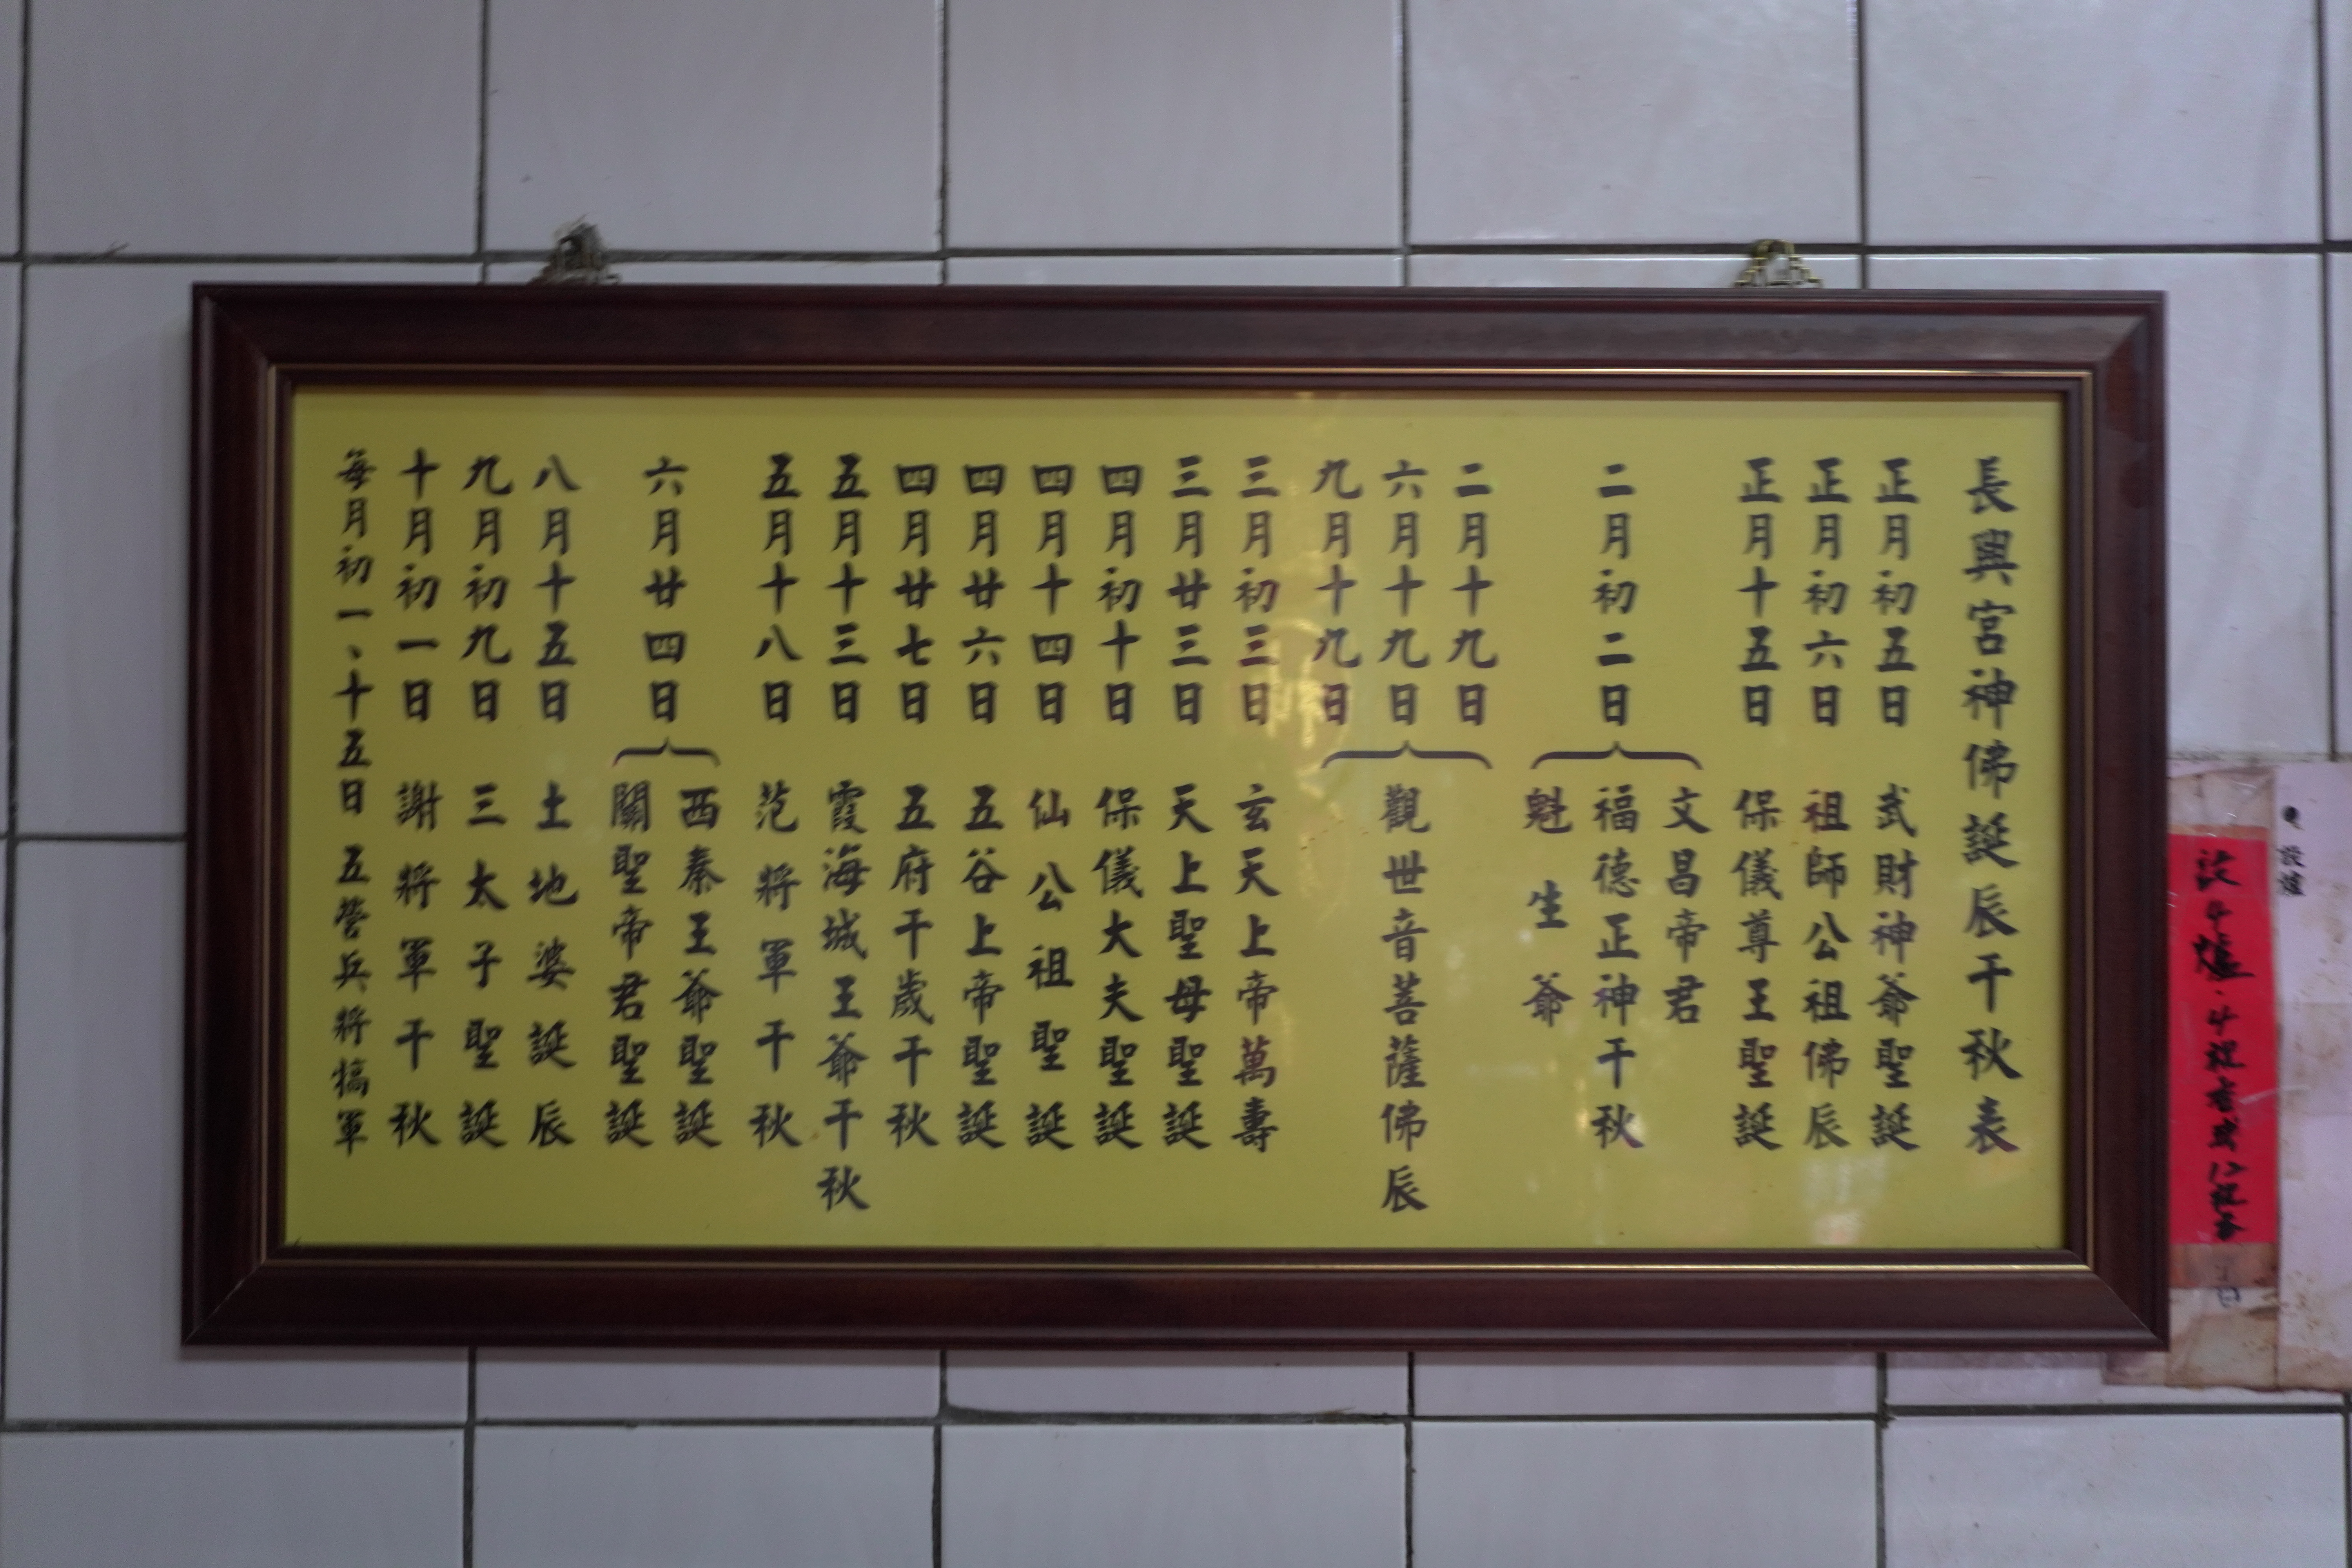 長興宮神佛誕辰千秋表
正月初五日 武財神爺聖誕
正月初六日 祖師公祖佛辰
正月十五日 保儀尊王聖誕
二月初二日
文昌帝君
福德正神千秋
魁生爺
二月十九日
六月十九日
九月十九日
觀世音菩薩佛辰
三月初三日 玄天上帝萬壽
三月廿三日 天上聖母聖誕
四月初十日 保儀大夫聖誕
四月十四日 仙公祖聖誕
四月廿六日 五谷上帝聖誕
四月廿七日 五府千歲千秋
五月十三日 霞海城王爺千秋
五月十八日 范將軍千秋
六月廿四日
西秦王爺聖誕
關聖帝君聖誕
八月十五日 土地婆誕辰
九月初九日 三太子聖誕
十月初一日 謝將軍千秋
每月初一、十五日 五營兵將犒軍
設爐